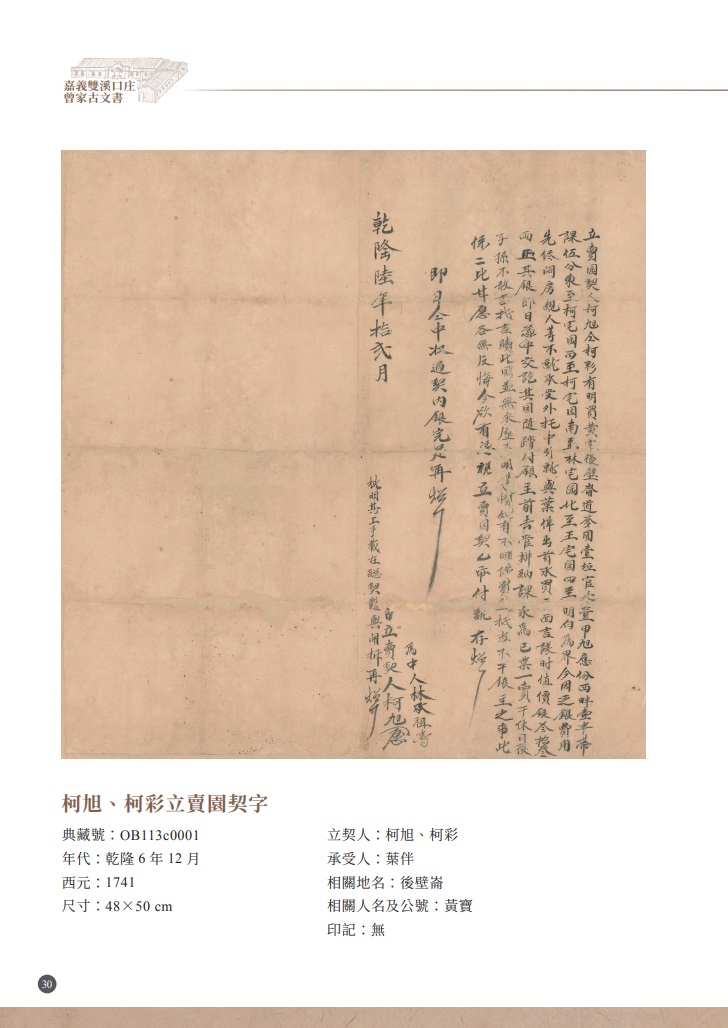 嘉義雙溪口庄
曾家古文書
立賣園契人柯旭仝柯彩有明買黃宅後壁崙道岺園壹坵官丈壹甲旭應份西畔壹半帶
課伍分東至柯宅園西至柯宅園南至林宅園北至王宅園四至明白為界今因乏銀費用
先侭問房親人等不能承受外托中引就與葉伴出首承買三面言議時值價銀叁拾叁
兩正其銀即日仝中交訖其園隨踏付銀主前去管耕納課永為己業一賣千休日後
子孫不敢言找言贖此園並無來歷不明等情如有不明係賣人抵當不干銀主之事此
係二比甘愿各無反悔今欲有憑親立賣園契乙紙付執存炤
即日仝中收過契內銀完足再炤
乾隆陸年拾弍月
批明其上手載在總契難與開拆再炤
為中人林承祖
自立賣契人柯旭
柯旭、柯彩立賣園契字
典藏號：OB113c0001
年代：乾隆 6 年 12 月
西元：1741
尺寸：48×50 cm
立契人：柯旭、柯彩
承受人：葉伴
相關地名：後壁崙
相關人名及公號：黃寶
印記：無
30